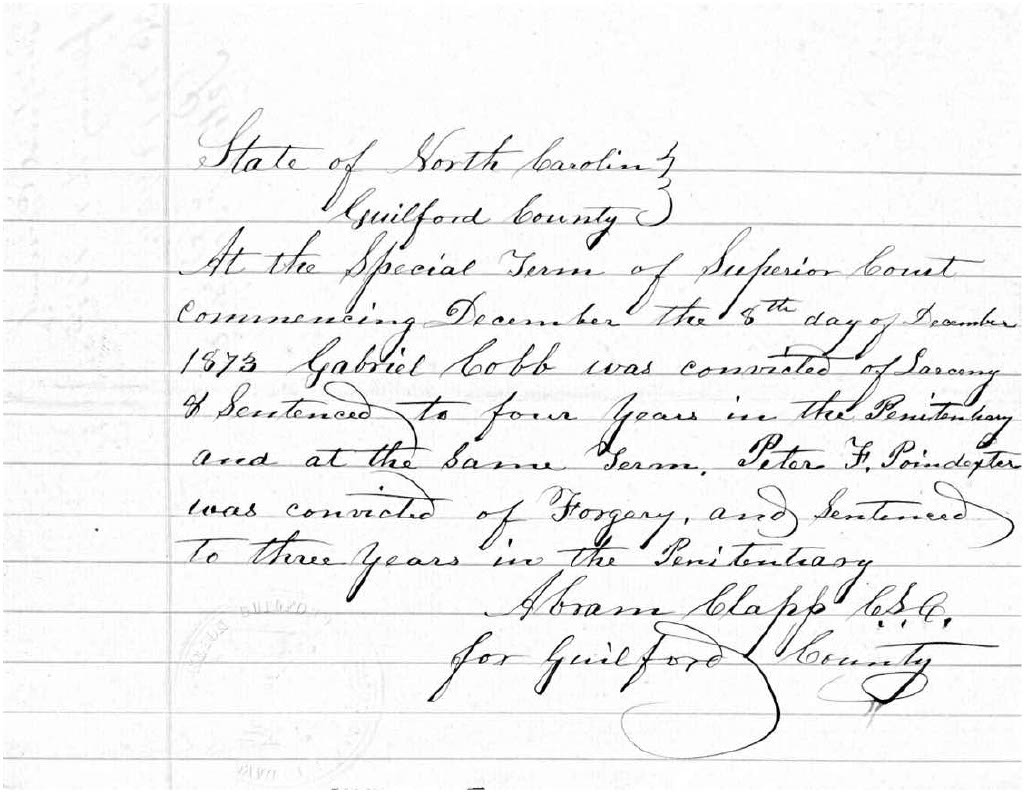 State of North Carolin }
Guilford County }
At the Special Term of Superior Court
Commencing December the 8th day of December
1873 Gabriel Cobb was convicted of Larceny
& Sentenced to four years in the Penitentiary
and at the Same Term. Peter F. Poindexter
was convicted of Forgery, and Sentenced
to three years in the Penitentiary
Abram Clapp C.S.C.
for Guilford County